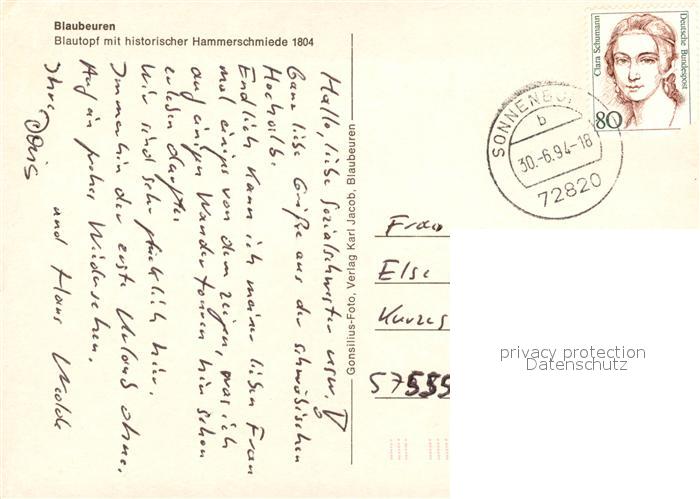 Blaubeuren
Blautopf mit historischer Hammerschmiede 1804
Hallo, liebe Sozialschwester usw.
Ganz liebe Grüße aus der schwäbischen
Hochalb.
Endlich kann ich meiner lieben Frau
mal einiges von dem zeigen, was ich
auf einigen Wandertouren hier schon
erleben durfte.
Wir sind sehr glücklich hier.
Immerhin der erste Urlaub ohne.
Auf ein frohes Wiedersehen.
Ihre Doris und Hans
Gonsilius-Foto, Verlag Karl Jacob, Blaubeuren
Clara Schumann
Deutsche Bundespost
80
b
30.-6.94-18
72820
Frau
Else
Kurzes
privacy protection
Datenschutz